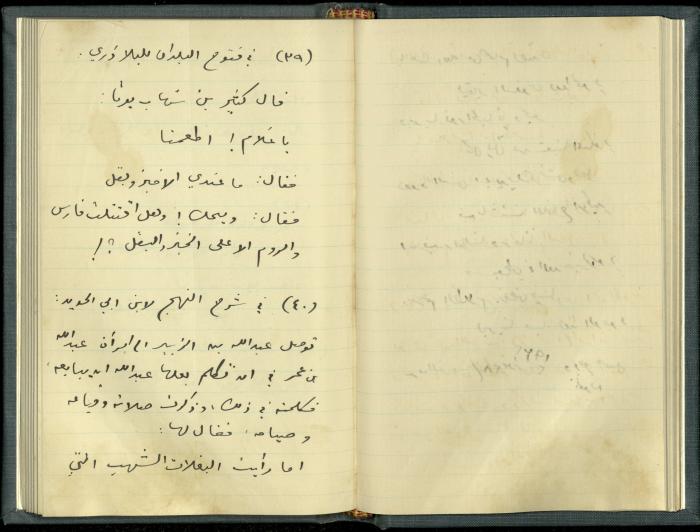 (٣٩) في فتوح البلدان للبلاذري:
قال كثير بن شهاب يوما:
يا غلام! اطعمنا
فقال: ما عندي الا خبز وبقل
فقال: ويحك! وهل اقتتلت فارس
والروم الا على الخبز والبقل؟!
(٤٠) في شرح النهج لابن ابي الحديد:
توصل عبدالله بن الزبير الى امرأة عبدالله
بن عمر في ان تكلم بعلها عبدالله ان يبايعه،
فكلمته في ذلك، وذكرت صلاته وقيامه
وصيامه، فقال لها:
اما رأيت البغلات الشهب التي